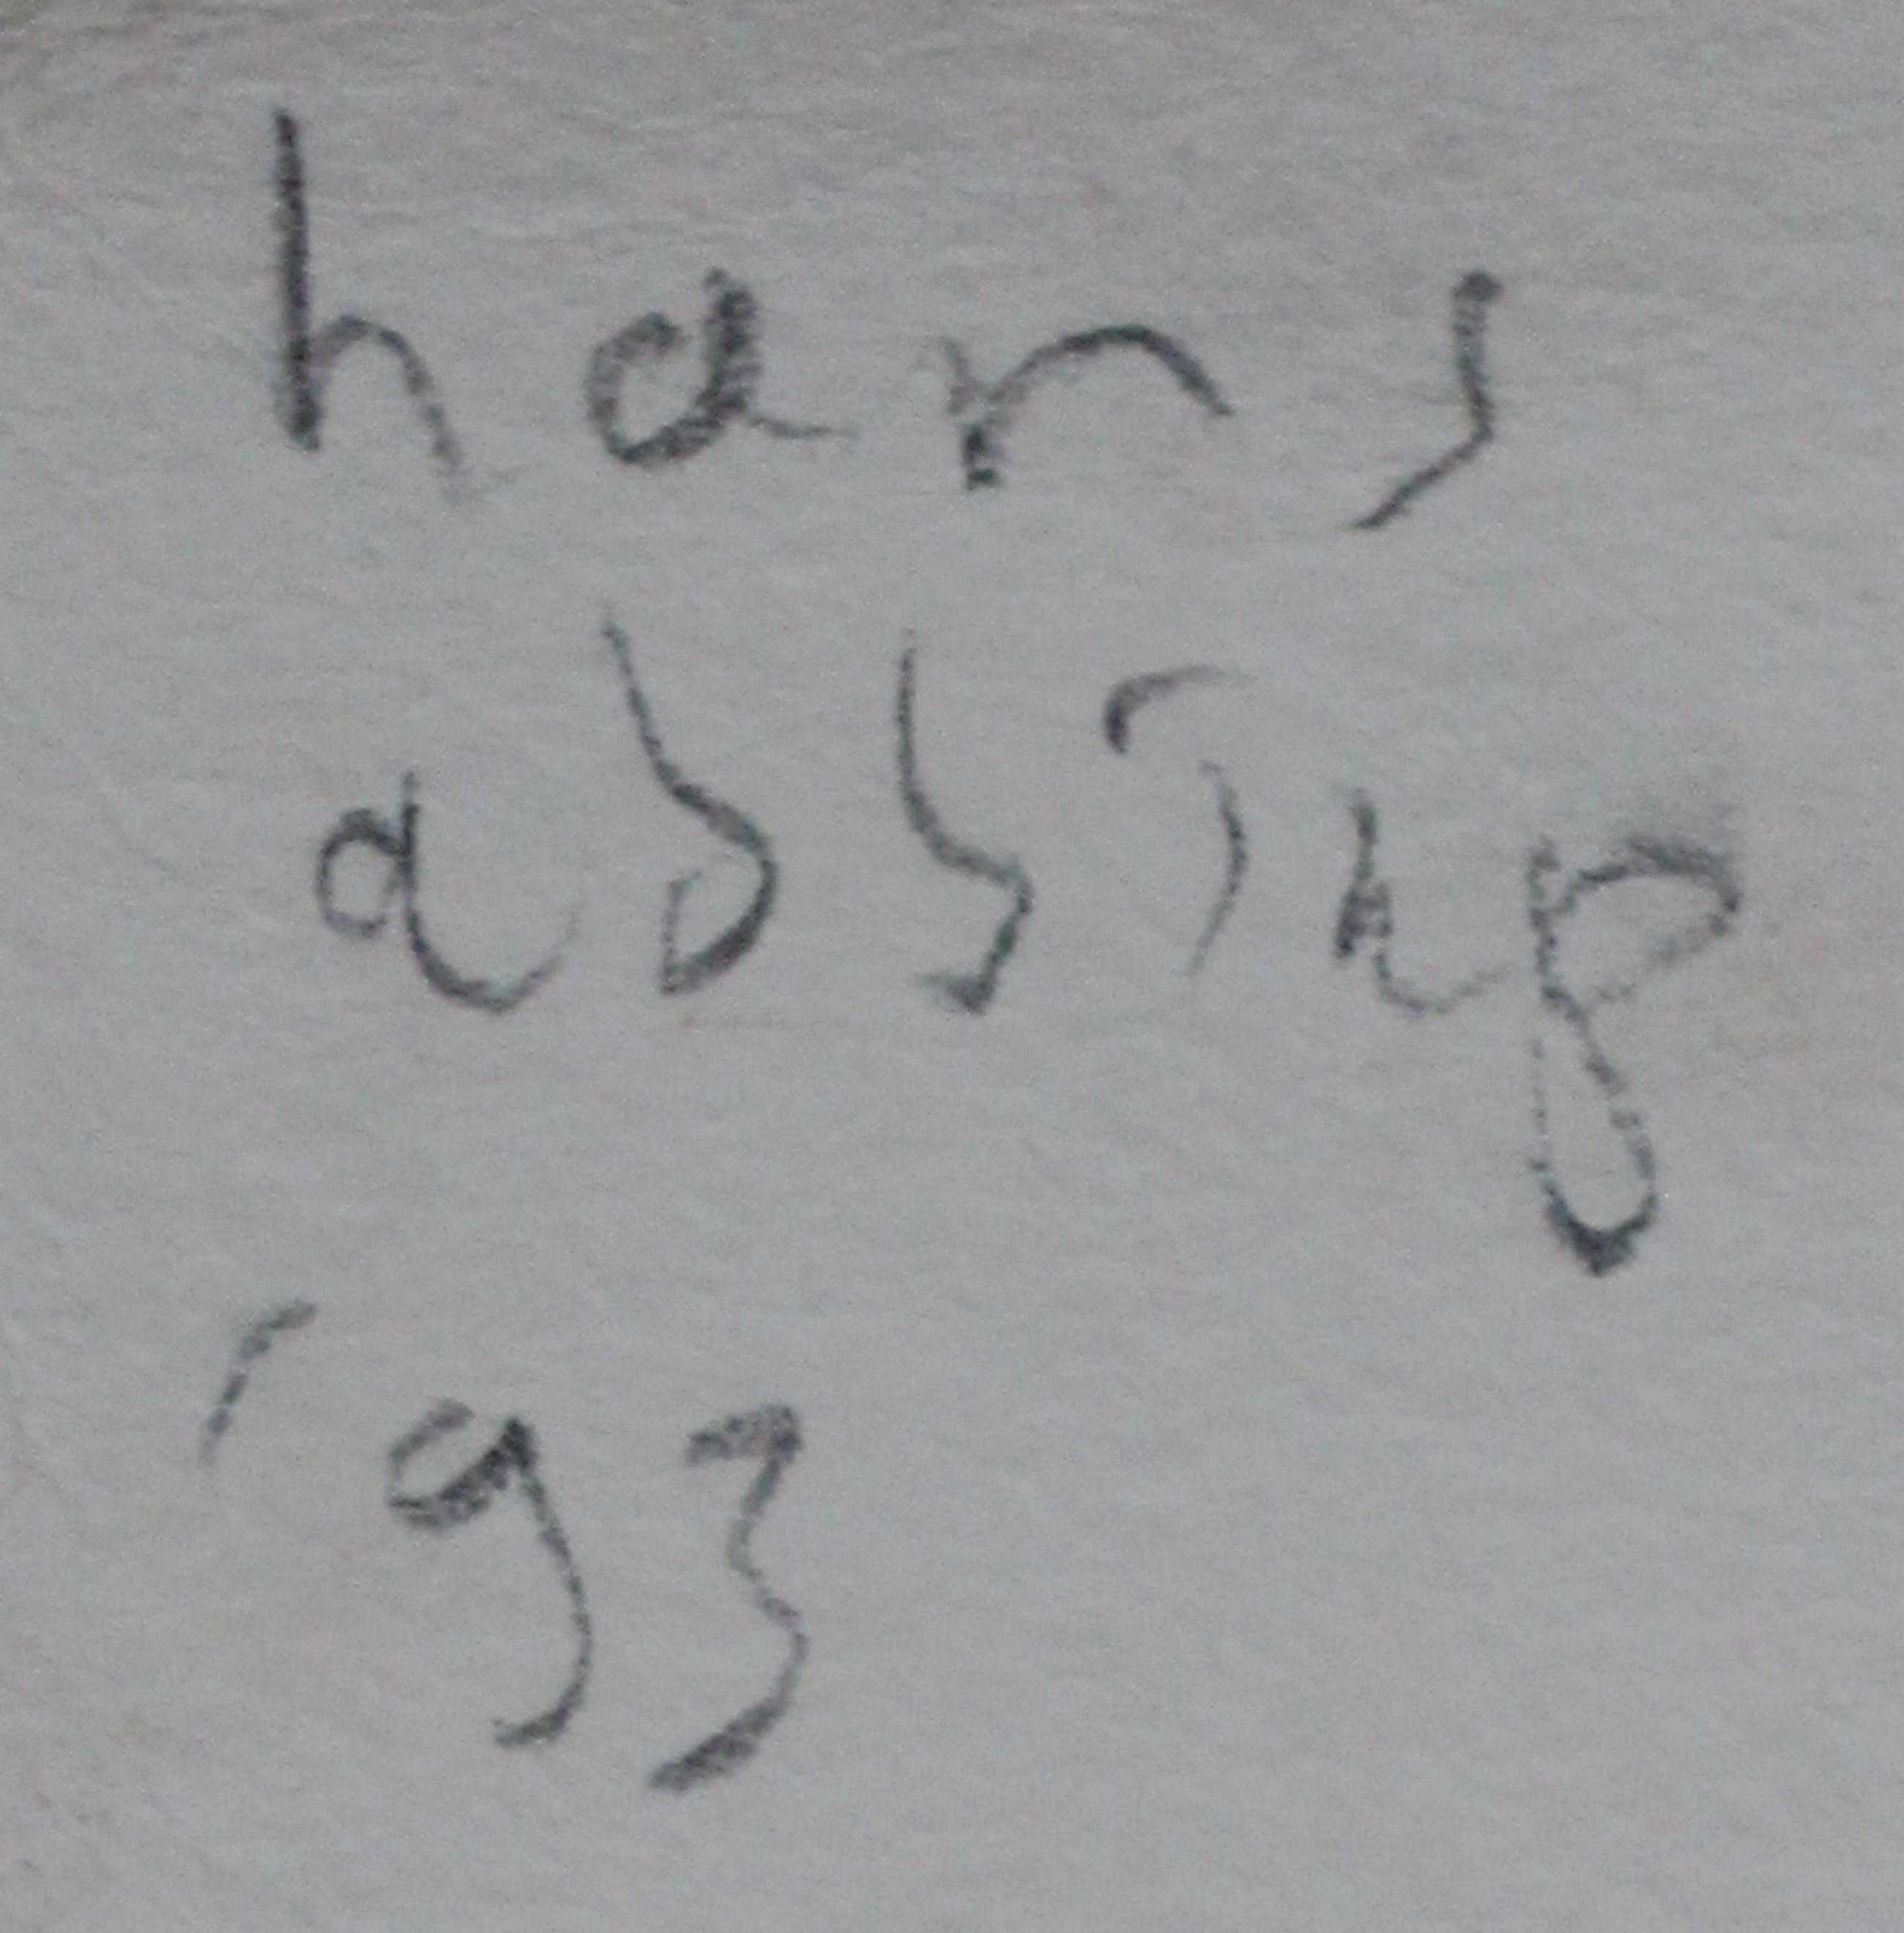 hans
abbing
'93